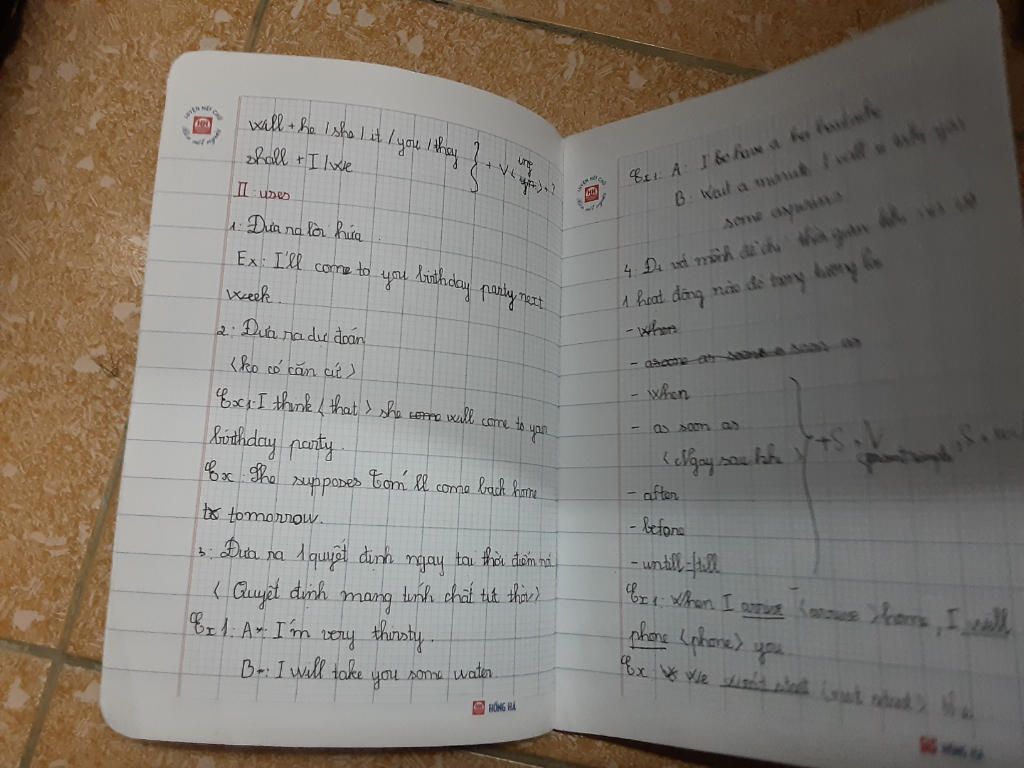 will + he / she / it / you / they } + V
shall + I / we
II : uses
1: Đưa ra lời hứa.
Ex: I'll come to you birthday party next
week.
2: Đưa ra dự đoán
<ko có căn cứ>
Ex1: I think <that> she come will come to you
birthday party.
Ex: She supposes Tom'll come back home
tomorrow.
3: Đưa ra 1 quyết định ngay tại thời điểm nói
< Quyết định mang tính chất tức thời>
Ex1: A: I'm very thirsty.
B: I will take you some water.
HỒNG HÀ
Ex1: A: I have a
B: Wait a minute, I will
some aspirins
4: Đi với mệnh đề chỉ thời gian
1 hoạt động nào đó trong tương lai
- when
- as soon as
- when
- as soon as
<Ngay sau khi> } + S + V
- after
- before
- untill = till
Ex1: When I arrive <arrive> home, I will
phone <phone> you
Ex We won't start
HỒNG HÀ